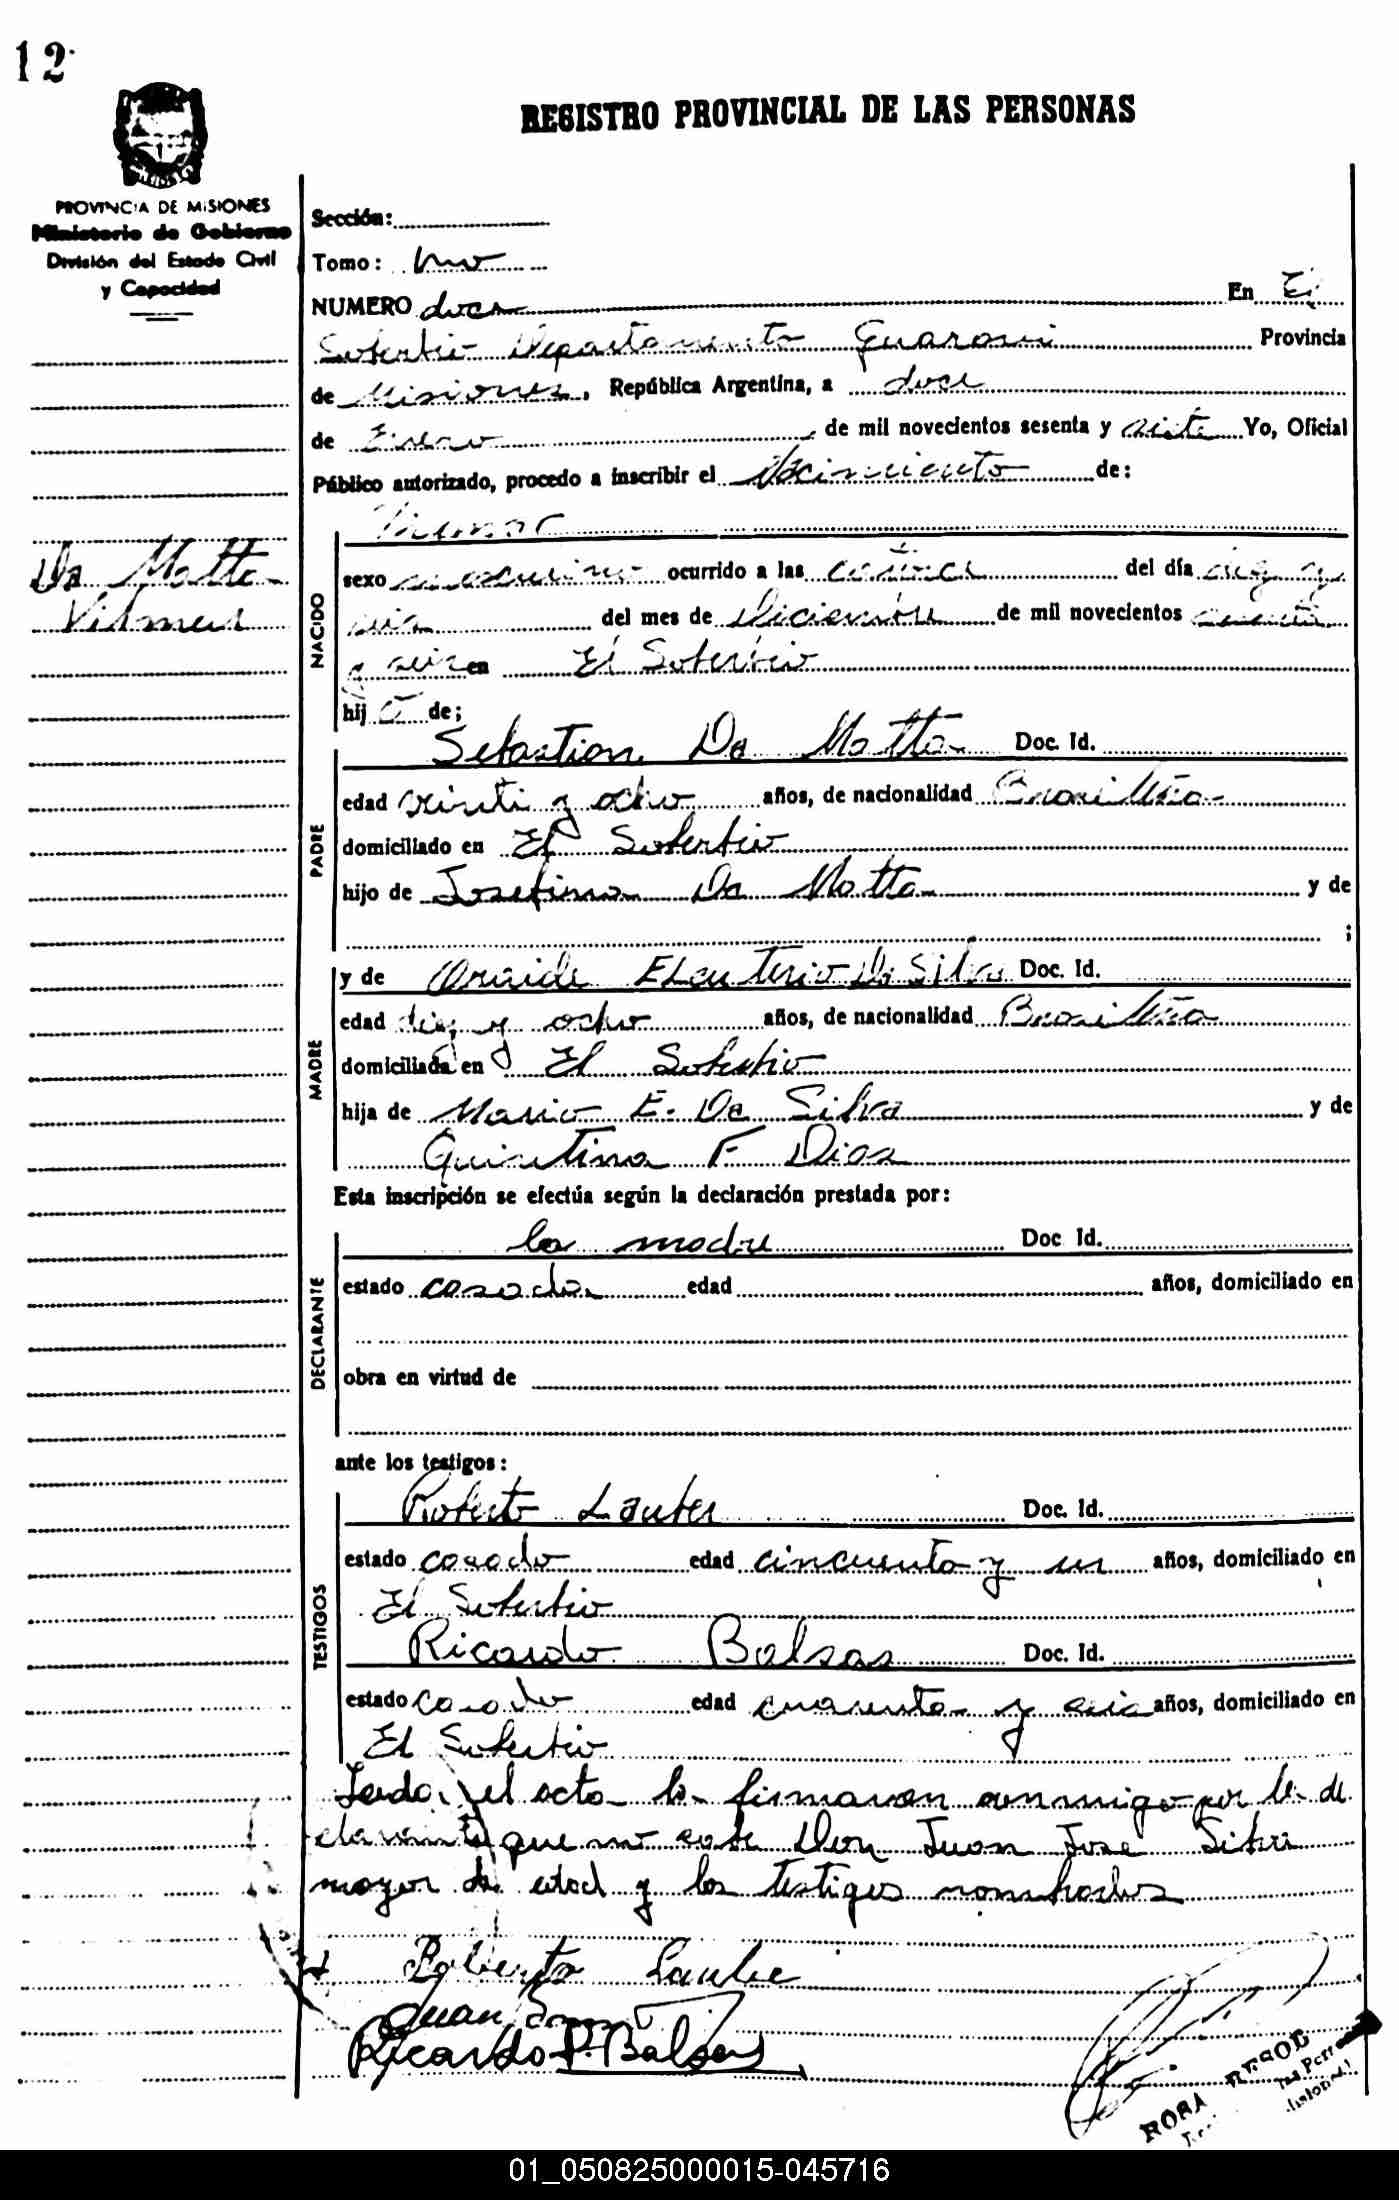 12
REGISTRO PROVINCIAL DE LAS PERSONAS
PROVINCIA DE MISIONES
Ministerio de Gobierno
División del Estado Civil
y Capacidad
Sección:
Tomo: Uno
NUMERO doce En El
Soberbio Departamento Guarani Provincia
de Misiones, República Argentina, a doce
de Enero de mil novecientos sesenta y siete Yo, Oficial
Público autorizado, procedo a inscribir el Nacimiento de:
Da Motta
Vilmar
NACIDO
sexo masculino ocurrido a las del día diez y
seis del mes de Diciembre de mil novecientos sesenta
y seis en El Soberbio
hij o de;
PADRE
Sebastian Da Motta Doc. Id.
edad veinti y ocho años, de nacionalidad Brasileña
domiciliado en El Soberbio
hijo de Josefina Da Motta y de
;
MADRE
y de Eleuterio Da Silva Doc. Id.
edad diez y ocho años, de nacionalidad Brasileña
domiciliada en El Soberbio
hija de Mario E. Da Silva y de
Quintina F Dias
Esta inscripción se efectúa según la declaración prestada por:
DECLARANTE
la madre Doc Id.
estado casada edad años, domiciliado en
obra en virtud de
ante los testigos:
TESTIGOS
Roberto Lauber Doc. Id.
estado casado edad cincuenta y un años, domiciliado en
El Soberbio
Ricardo Balsas Doc. Id.
estado casado edad cuarenta y seis años, domiciliado en
El Soberbio
Leida el acta la firmaron conmigo por la de
clarante que no sabe Don Juan Jose Silva
mayor de edad y los testigos nombrados
Roberto Laube
Juan
Ricardo P. Balsas
ROSA
01_050825000015-045716